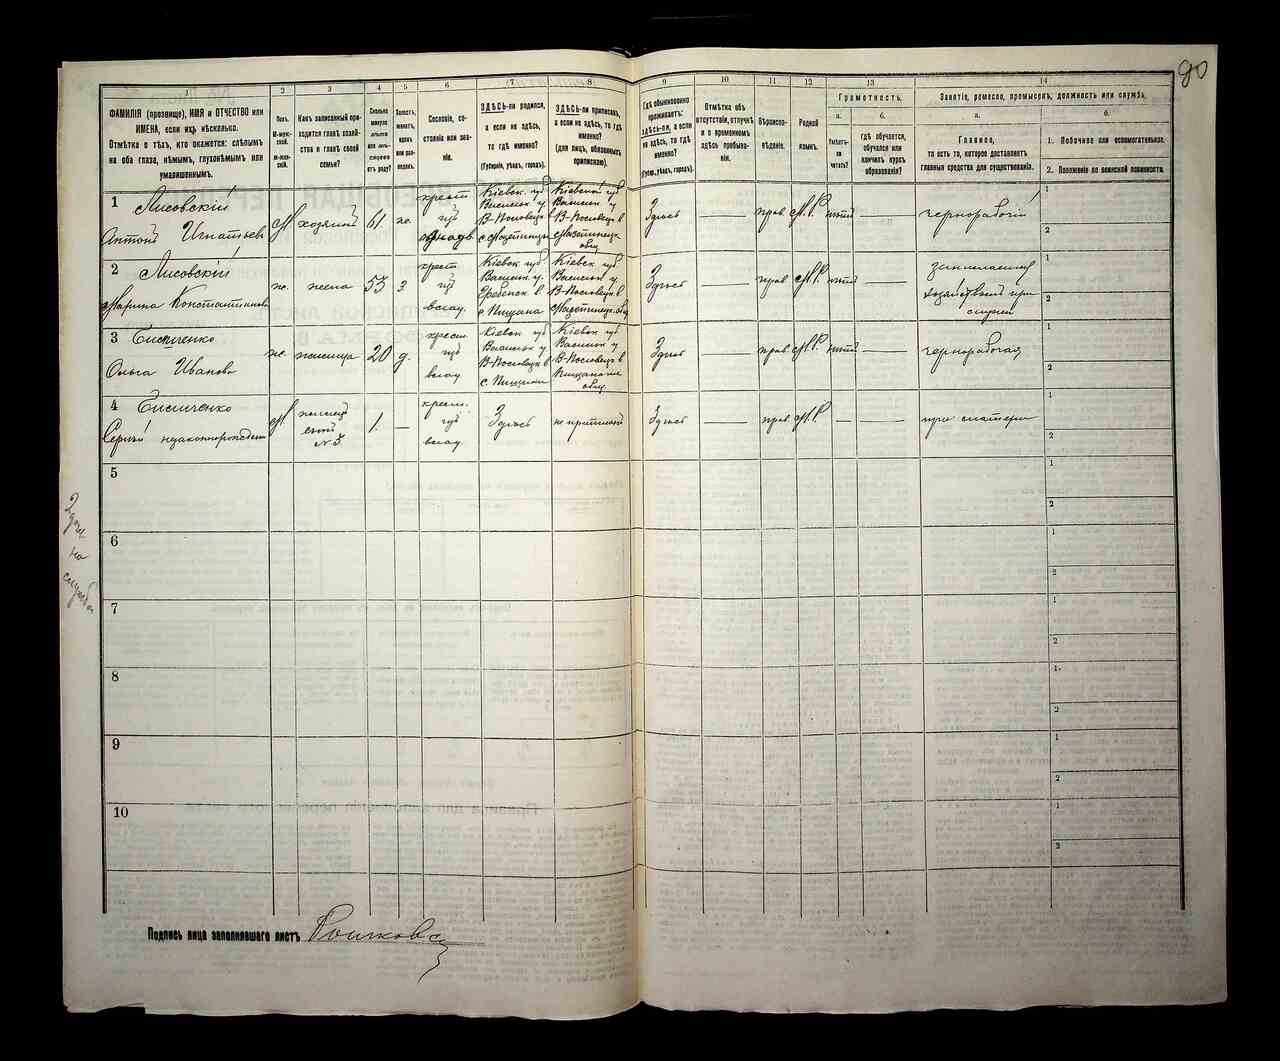 90
1
2
3
4
5
6
7
8
9
10
11
12
13
14
ФАМИЛІЯ (прозвище), ИМЯ и ОТЧЕСТВО или
ИМЕНА, если ихъ нѣсколько.
Отмѣтка о тѣхъ, кто окажется: слѣпымъ
на оба глаза, нѣмымъ, глухонѣмымъ или
умалишеннымъ.
Полъ.
М-муж-
ской.
Ж-жен-
скій.
Какъ записанный при-
ходится главѣ хозяй-
ства и главѣ своей
семьи?
Сколько
минуло
лѣтъ
или мѣ-
сяцевъ
отъ роду?
Холостъ,
женатъ,
вдовъ
или раз-
веденъ.
Сословіе, со-
стояніе или зва-
ніе.
ЗДѢСЬ-ли родился,
а если не здѣсь,
то гдѣ именно?
(Губернія, уѣздъ, городъ).
ЗДѢСЬ-ли приписанъ,
а если не здѣсь, то гдѣ
именно?
(для лицъ, обязанныхъ
припискою).
Гдѣ обыкновенно
проживаетъ:
здѣсь-ли, а если
не здѣсь, то гдѣ
именно?
(Губер., уѣздъ, городъ).
Отмѣтка объ
отсутствіи, отлучкѣ
и о временномъ
здѣсь пребыва-
ніи.
Вѣроиспо-
вѣданіе.
Родной
языкъ.
Грамотность.
а.
Умѣетъ-
ли
читать?
б.
гдѣ обучается,
обучался или
кончилъ курсъ
образованія?
Занятіе, ремесло, промыселъ, должность или служба.
а.
Главное,
то есть то, которое доставляетъ
главныя средства для существованія.
б.
1. Побочное или вспомогательное.
2. Положеніе по воинской повинности.
1
Лисовскій
Антонъ Игнатьевъ
М
хозяинъ
61
ж.
крест
Кіевск. губ
Василк у
В-Половецк в
Кіевской губ
Василк у
В-Половецк в
общ.
Здѣсь
прав
М.Р.
нѣтъ
чернорабочій
1
2
2
Лисовскій
Марина Константинова
ж.
жена
53
з
крест
Кіевск губ
Василк у.
Гребенск в
Кіевск губ
Василк у
В-Половецк в
Здѣсь
прав
М.Р.
нѣтъ
1
2
3
Ольга Иванова
ж.
20
д.
крест.
Кіевск губ
Василк у
В-Половецк в
Кіевск губ
Василк у
В-Половецк в
общ.
Здѣсь
прав
М.Р.
нѣтъ
чернорабочая
1
2
4
Сергій незаконнорожден
М
№3
1.
крест.
Здѣсь
не приписанъ
Здѣсь
прав
М.Р.
при матери
1
2
5
1
2
6
1
2
7
1
2
8
1
2
9
1
2
10
1
2
на
службѣ
Подпись лица заполнявшаго листъ